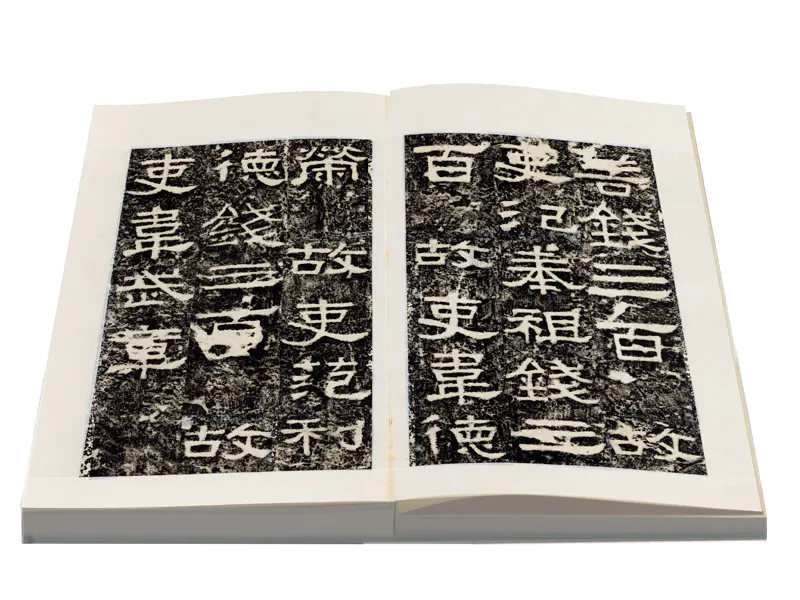 善錢三百 故
吏氾奉祖錢三
百 故吏韋德
榮 故吏范利
德錢三百 故
吏韋武章